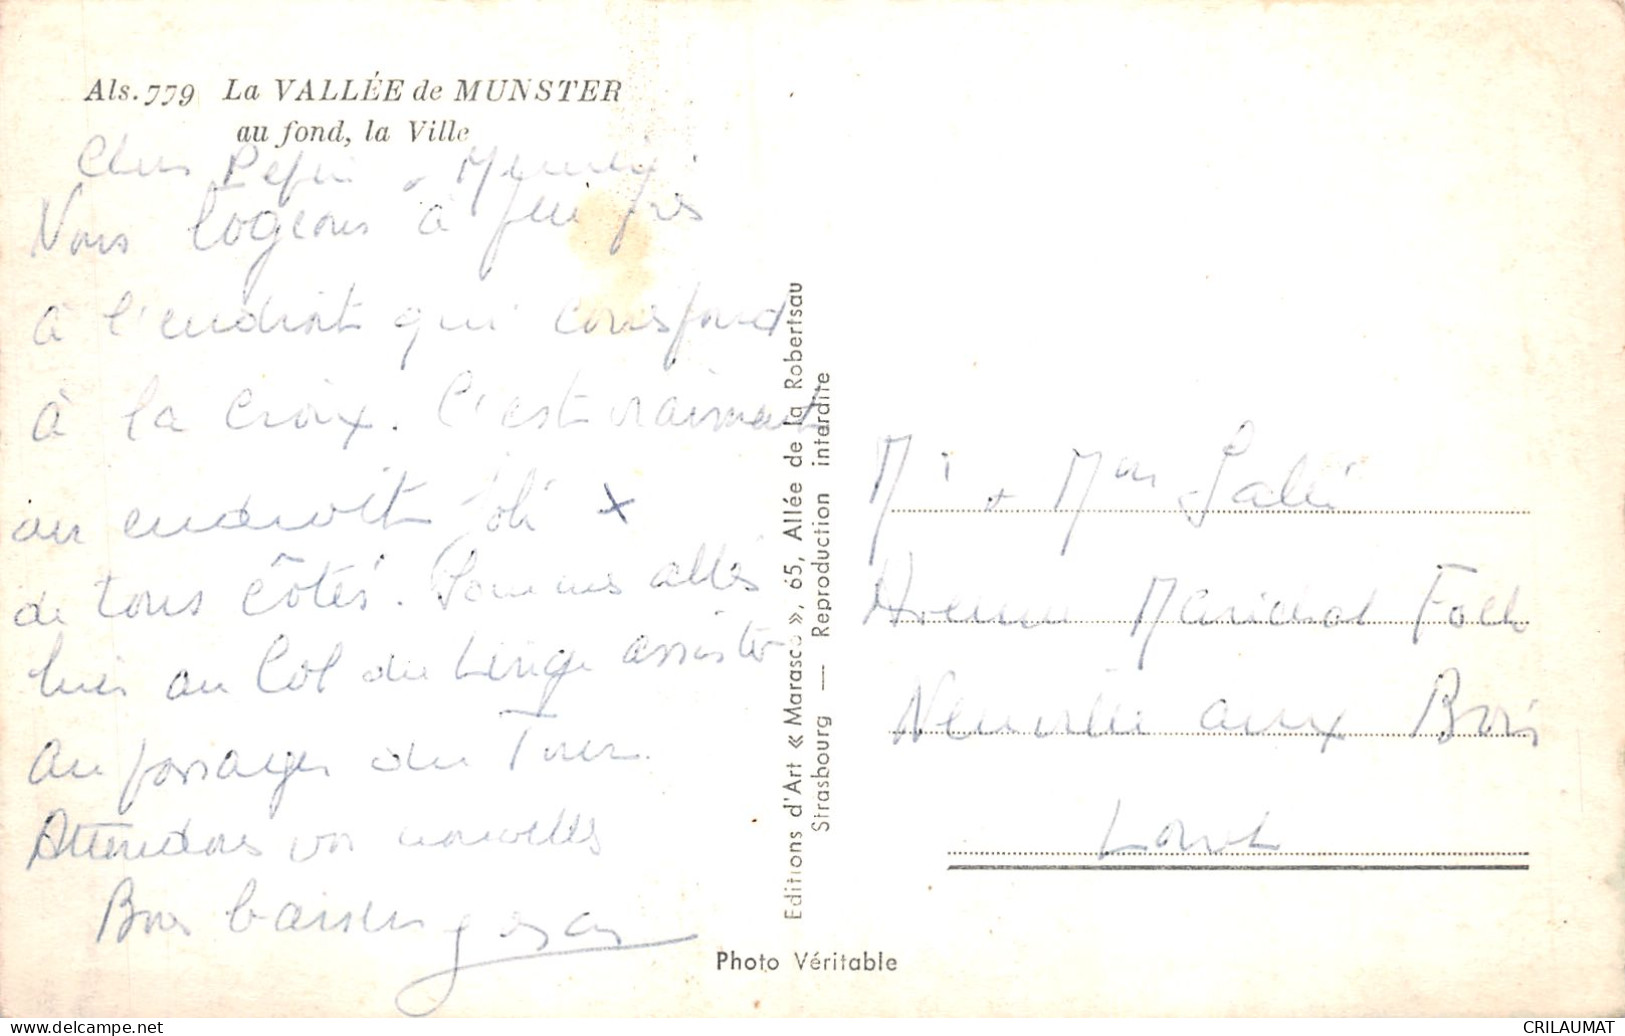 Als. 779 La VALLÉE de MUNSTER
au fond, la Ville
Chers Pepin
Nous logeons à peu près
à l'endroit qui correspond
à la croix. C'est vraiment
un endroit joli x
de tous côtés. Sommes allés
hier au Col du Linge assister
au passage du Tour.
Attendons vos nouvelles
Bons baisers
Editions d'Art « Marasco », 65, Allée de la Robertsau
Strasbourg — Reproduction interdite
Photo Véritable
Mr + Mme
Avenue Maréchal Foch
Neuville aux Bois
Loiret
CRILAUMAT